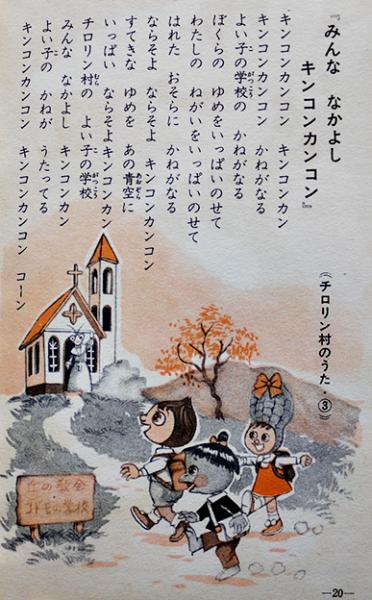 『みんな なかよし
キンコンカンコン』
(チロリン村のうた・③)
キンコンカンコン キンコンカン
キンコンカンコン かねがなる
よい子の学校の かねがなる
ぼくらの ゆめをいっぱいのせて
わたしの ねがいをいっぱいのせて
はれた おそらに かねがなる
ならそよ ならそよ キンコンカンコン
すてきな ゆめを あの青空に
いっぱい ならそよキンコンカンコン
チロリン村の よい子の学校
みんな なかよし キンコンカン
よい子の かねが うたってる
キンコンカンコン キンコンカンコン コーン
丘の教会
コドモの学校
—20—